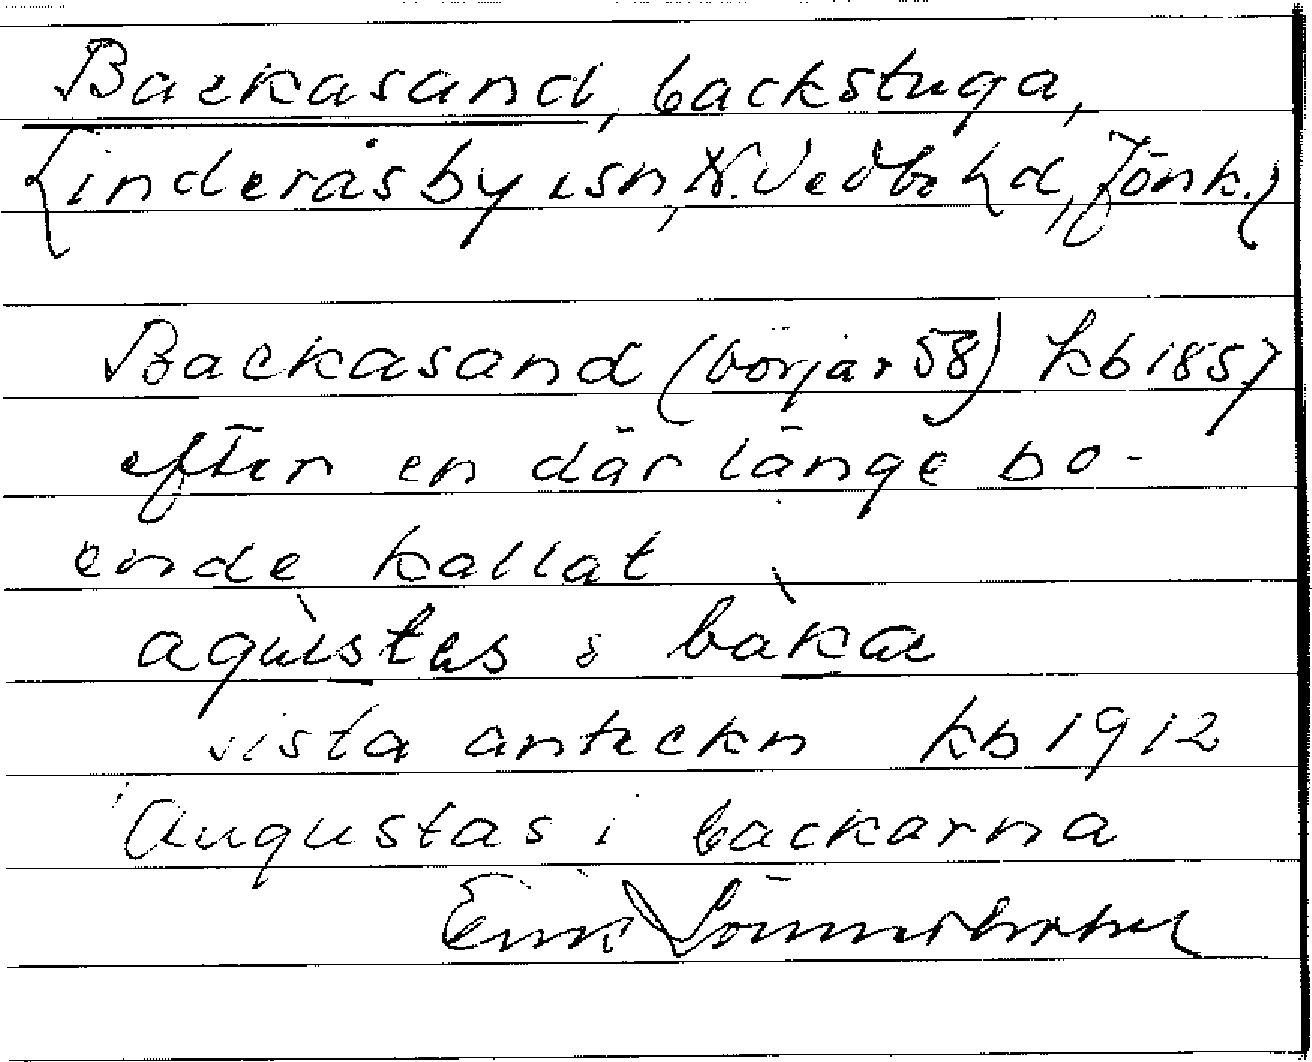 Backasand, backstuga,
Linderåsby i sn, N. Vedbo hd, Jönk. l
Backasand (börjar 58) kb 1857
efter en där länge bo-
ende kallat
agùstas i bàkaɶ
sista anteckn kb 1912
Augustas i backarna
Erik